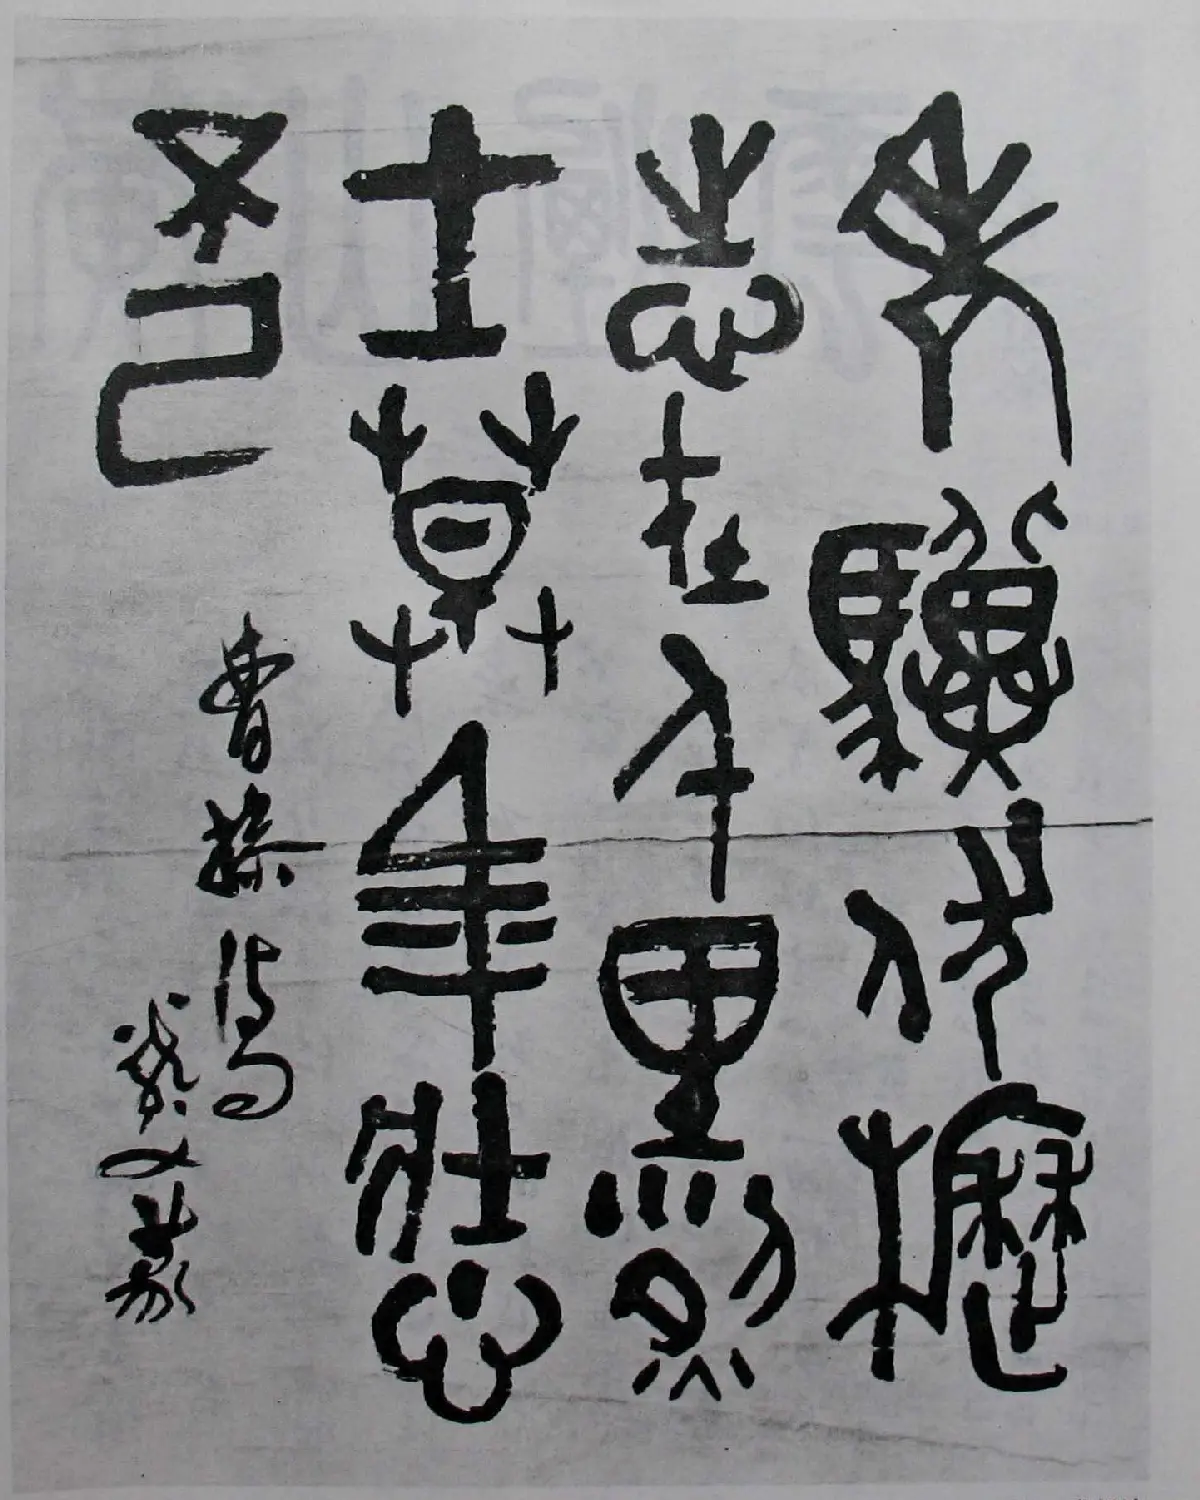 老驥伏櫪
志在千里烈
士莫年壯心
不已
曹操詩句
篆